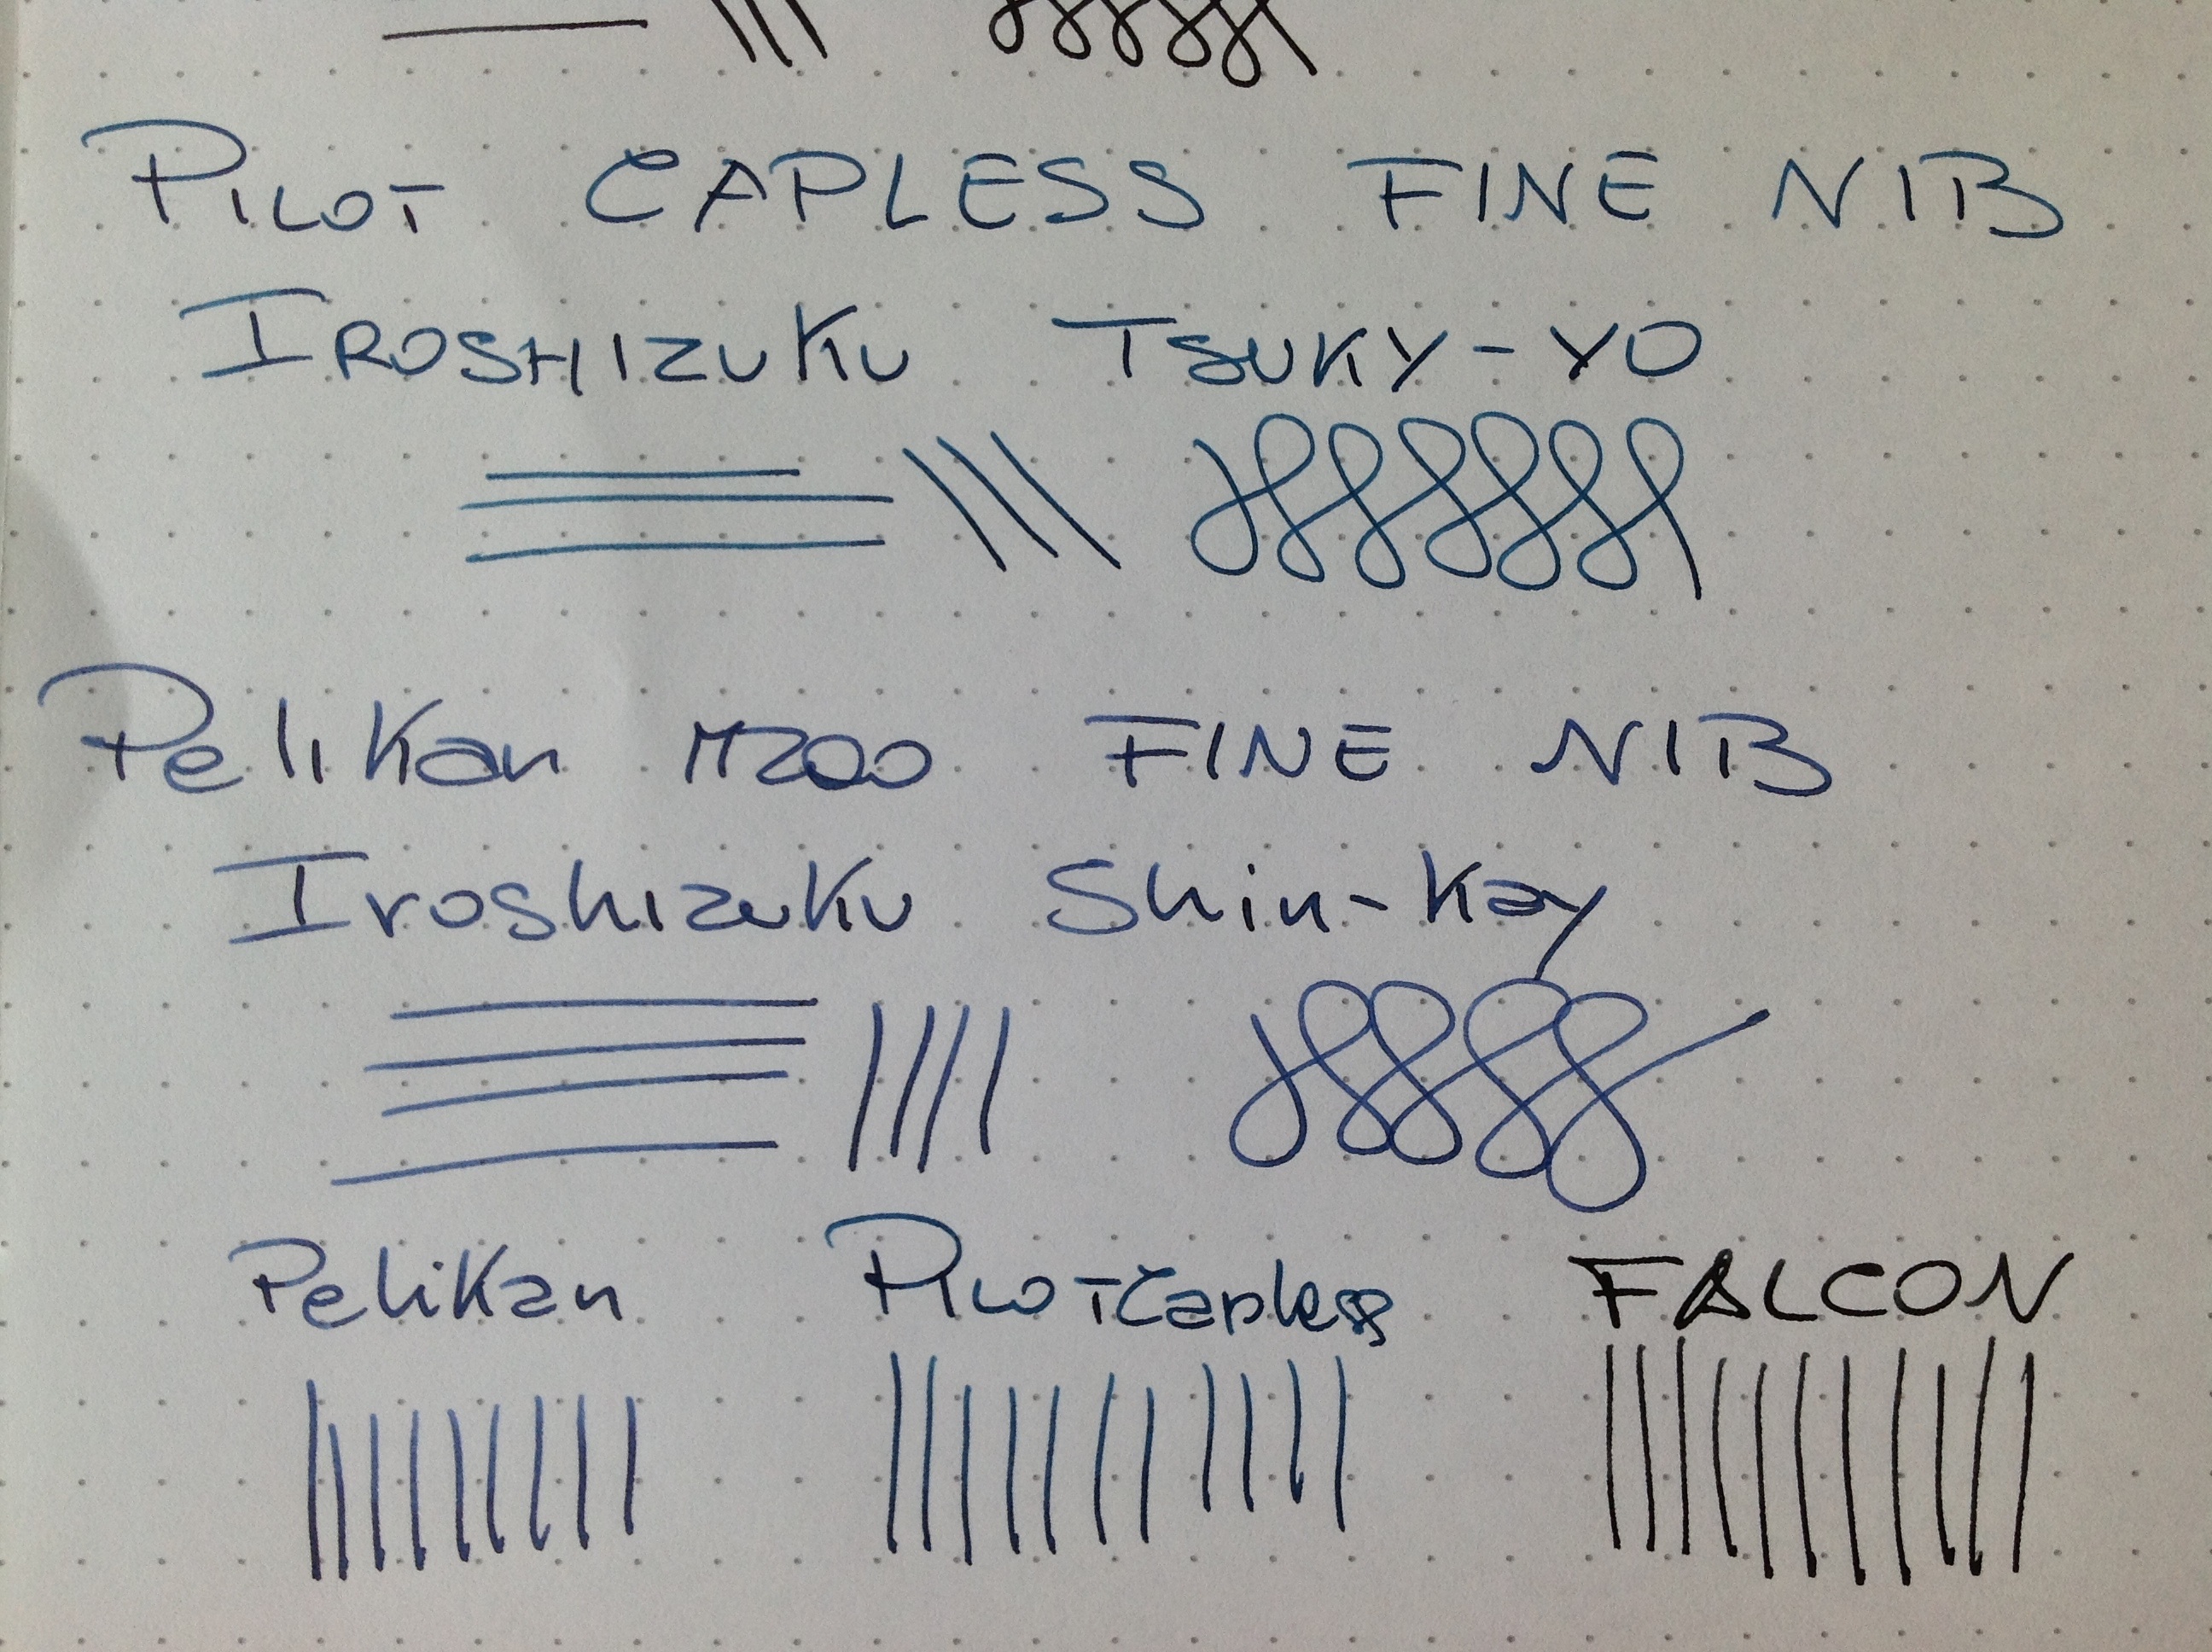 PILOT CAPLESS FINE NIB
IROSHIZUKU TSUKY-YO
Pelikan M200 FINE NIB
Iroshizuku Shin-Kay
Pelikan PILOT Capless FALCON